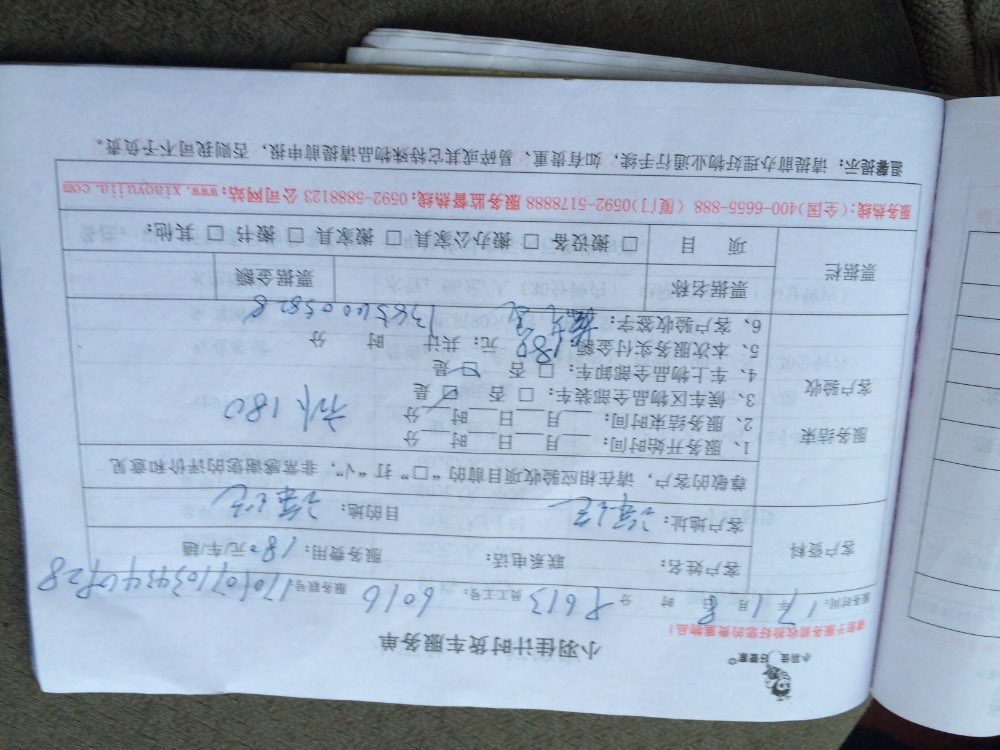 小羽佳 好管家
小羽佳计时货车服务单
请您于服务前收捡好您的贵重物品！
服务时间： 17年 1月 8日 时 分 员工工号： 6016 服务联号
客户资料
客户姓名： 联系电话： 服务费用：180元/车/趟
客户地址： 目的地：
服务结束
客户验收
尊敬的客户，请在相应验收项目前的“□”打“√”，非常感谢您的评价和意见
1、服务开始时间： 月 日 时 分
2、服务结束时间： 月 日 时 分
3、候车区物品全部装车：□ 否 □ 是
4、车上物品全部卸车：□ 否 □ 是
5、本次服务实付金额 180 元；共计 时 分
6、客户验收签字：
180
票据栏
票据名称 票据金额
项 目 □ 搬设备 □ 搬办公家具 □ 搬家具 □ 搬书 □ 其他：
服务热线：(全国)400-6655-888 (厦门)0592-5178888 服务监督热线：0592-5888123 公司网站：www.xiaoyujia.com
温馨提示：请提前办理好物业通行手续，如有贵重、易碎或其它特殊物品请提前申报，否则我司不予负责。